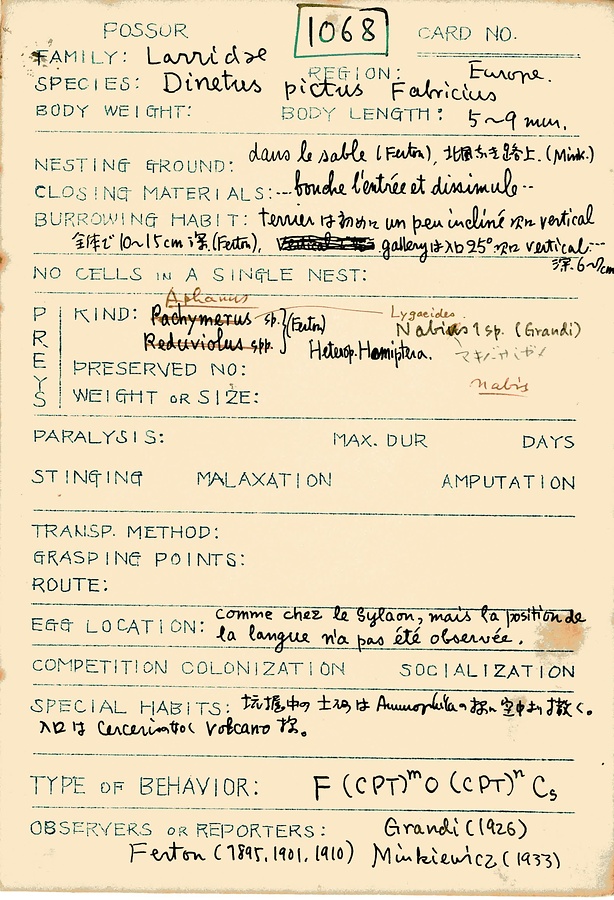 FOSSOR 1068 CARD NO.
FAMILY: Larridae
REGION: Europe.
SPECIES: Dinetus pictus Fabricius
BODY WEIGHT: BODY LENGTH: 5~9 mm.
NESTING GROUND: dans le sable (Ferton), 路上. (Mink.)
CLOSING MATERIALS: --- bouche l'entrée et dissimule --
BURROWING HABIT: terrier は初めに un peu incliné 次に vertical
全体で10~15cm 深. (Ferton), galleryは入口25° 次に vertical ---
深. 6~7cm
NO CELLS IN A SINGLE NEST:
Aphanus
PREYS KIND: Pachymerus sp. (Ferton) Lygaeides
Reduviolus spp. Nabius 1 sp. (Grandi)
Heterop. Hemiptera. マキバサシガメ
PRESERVED NO: Nabis
WEIGHT OR SIZE:
PARALYSIS: MAX. DUR DAYS
STINGING MALAXATION AMPUTATION
TRANSP. METHOD:
GRASPING POINTS:
ROUTE:
EGG LOCATION: comme chez le Sylaon, mais la position de
la langue n'a pas été observée.
COMPETITION COLONIZATION SOCIALIZATION
SPECIAL HABITS: 坑掘中の土は Ammophila の様に空中より撒く。
入口は Cerceris volcano 様。
TYPE OF BEHAVIOR: F (CPT)ᵐ O (CPT)ⁿ Cs
OBSERVERS OR REPORTERS: Grandi (1926)
Ferton (1895, 1901, 1910) Minkiewicz (1933)